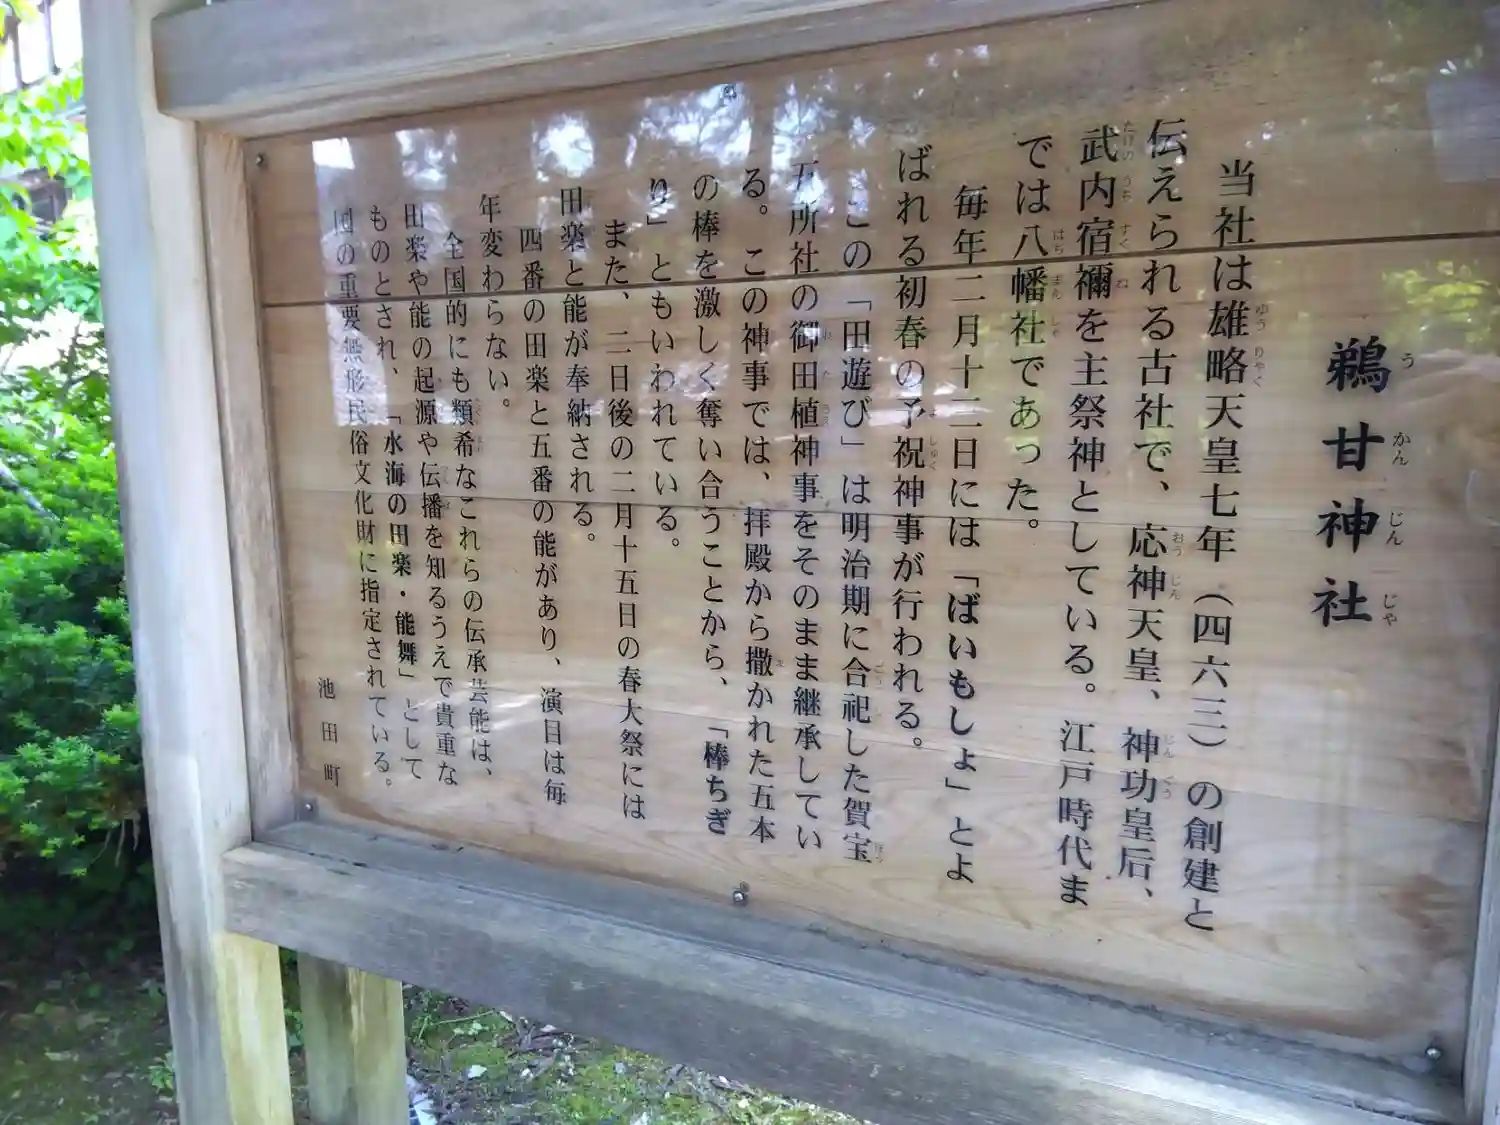 鵜甘神社
当社は雄略天皇七年（四六三）の創建と
伝えられる古社で、応神天皇、神功皇后、
武内宿禰を主祭神としている。江戸時代ま
では八幡社であった。
毎年二月十二日には「ばいもしょ」とよ
ばれる初春の予祝神事が行われる。
この「田遊び」は明治期に合祀した賀宝
五所社の御田植神事をそのまま継承してい
る。この神事では、拝殿から撒かれた五本
の棒を激しく奪い合うことから、「棒ちぎ
り」ともいわれている。
また、二日後の二月十五日の春大祭には
田楽と能が奉納される。
四番の田楽と五番の能があり、演目は毎
年変わらない。
全国的にも類希なこれらの伝承芸能は、
田楽や能の起源や伝播を知るうえで貴重な
ものとされ、「水海の田楽・能舞」として
国の重要無形民俗文化財に指定されている。
池田町